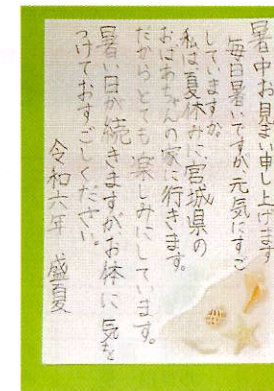 暑中お見まい申し上げます
毎日暑いですが、元気にすご
していますか
私は夏休みに、宮城県の
おばあちゃんの家に行きます。
だからとても楽しみにしています。
暑い日が続きますがお体に気を
つけておすごしください。
令和六年 盛夏